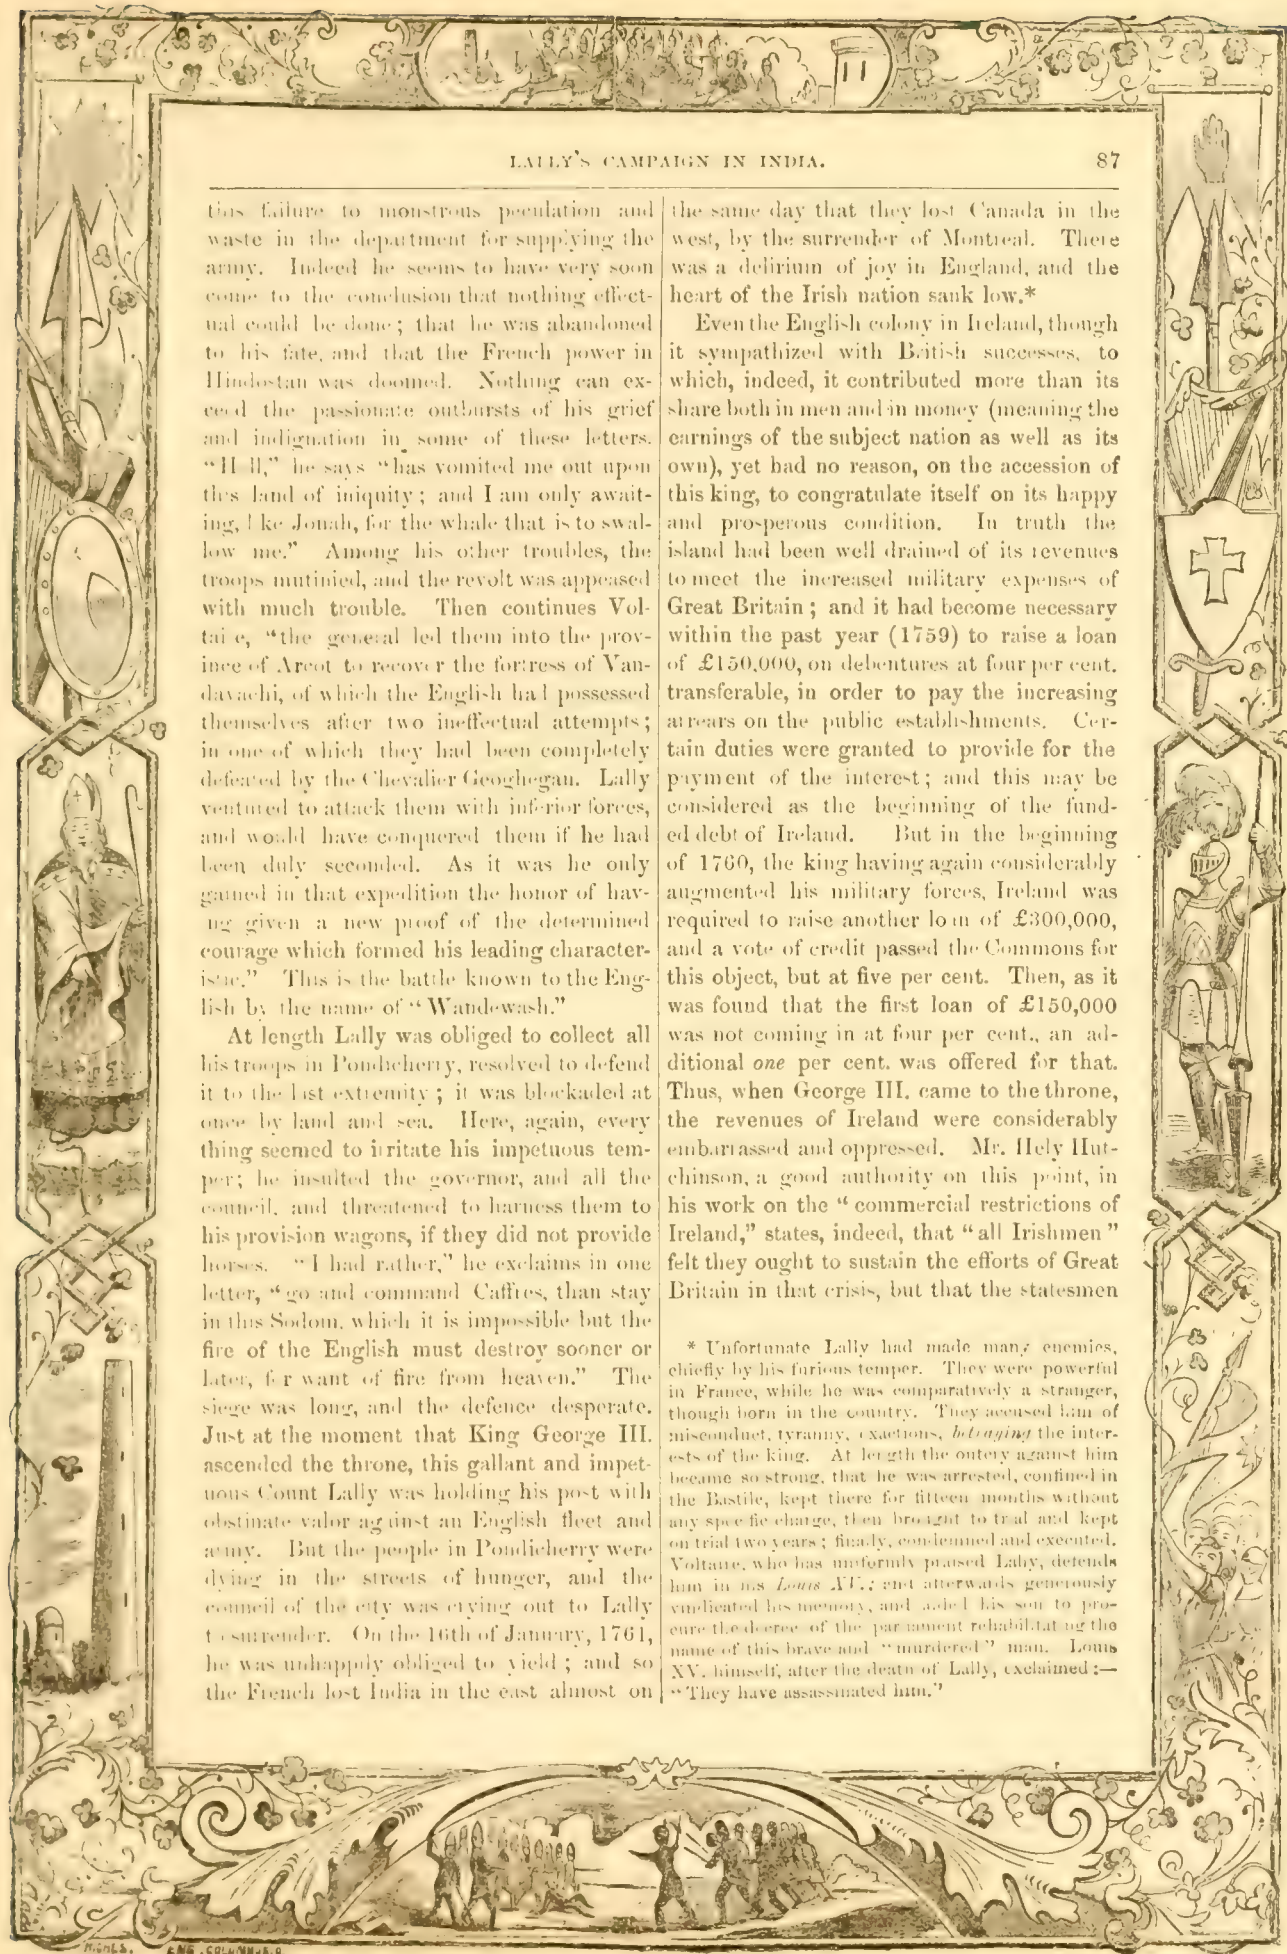 LALLY'S CAMPAIGN IN INDIA.
87
this failure to monstrous peculation and
waste in the department for supplying the
army. Indeed he seems to have very soon
come to the conclusion that nothing effect-
ual could be done; that he was abandoned
to his fate, and that the French power in
Hindostan was doomed. Nothing can ex-
ceed the passionate outbursts of his grief
and indignation in some of these letters.
"Hell," he says "has vomited me out upon
this land of iniquity; and I am only await-
ing, like Jonah, for the whale that is to swal-
low me." Among his other troubles, the
troops mutinied, and the revolt was appeased
with much trouble. Then continues Vol-
taire, "the general led them into the prov-
ince of Arcot to recover the fortress of Van-
davachi, of which the English had possessed
themselves after two ineffectual attempts;
in one of which they had been completely
defeated by the Chevalier Geoghegan. Lally
ventured to attack them with inferior forces,
and would have conquered them if he had
been duly seconded. As it was he only
gained in that expedition the honor of hav-
ing given a new proof of the determined
courage which formed his leading character-
istic." This is the battle known to the Eng-
lish by the name of "Wandewash."
At length Lally was obliged to collect all
his troops in Pondicherry, resolved to defend
it to the last extremity; it was blockaded at
once by land and sea. Here, again, every
thing seemed to irritate his impetuous tem-
per; he insulted the governor, and all the
council, and threatened to harness them to
his provision wagons, if they did not provide
horses. "I had rather," he exclaims in one
letter, "go and command Caffres, than stay
in this Sodom, which it is impossible but the
fire of the English must destroy sooner or
later, for want of fire from heaven." The
siege was long, and the defence desperate.
Just at the moment that King George III.
ascended the throne, this gallant and impet-
uous Count Lally was holding his post with
obstinate valor against an English fleet and
army. But the people in Pondicherry were
dying in the streets of hunger, and the
council of the city was crying out to Lally
to surrender. On the 16th of January, 1761,
he was unhappily obliged to yield; and so
the French lost India in the east almost on
the same day that they lost Canada in the
west, by the surrender of Montreal. There
was a delirium of joy in England, and the
heart of the Irish nation sank low.*
Even the English colony in Ireland, though
it sympathized with British successes, to
which, indeed, it contributed more than its
share both in men and in money (meaning the
earnings of the subject nation as well as its
own), yet had no reason, on the accession of
this king, to congratulate itself on its happy
and prosperous condition. In truth the
island had been well drained of its revenues
to meet the increased military expenses of
Great Britain; and it had become necessary
within the past year (1759) to raise a loan
of £150,000, on debentures at four per cent.
transferable, in order to pay the increasing
arrears on the public establishments. Cer-
tain duties were granted to provide for the
payment of the interest; and this may be
considered as the beginning of the fund-
ed debt of Ireland. But in the beginning
of 1760, the king having again considerably
augmented his military forces, Ireland was
required to raise another loan of £300,000,
and a vote of credit passed the Commons for
this object, but at five per cent. Then, as it
was found that the first loan of £150,000
was not coming in at four per cent., an ad-
ditional one per cent. was offered for that.
Thus, when George III. came to the throne,
the revenues of Ireland were considerably
embarrassed and oppressed. Mr. Hely Hut-
chinson, a good authority on this point, in
his work on the "commercial restrictions of
Ireland," states, indeed, that "all Irishmen"
felt they ought to sustain the efforts of Great
Britain in that crisis, but that the statesmen
* Unfortunate Lally had made many enemies,
chiefly by his furious temper. They were powerful
in France, while he was comparatively a stranger,
though born in the country. They accused him of
misconduct, tyranny, exactions, betraying the inter-
ests of the king. At length the outcry against him
became so strong, that he was arrested, confined in
the Bastile, kept there for fifteen months without
any specific charge, then brought to trial and kept
on trial two years; finally, condemned and executed.
Voltaire, who has uniformly praised Lally, defends
him in his Louis XV.; and afterwards generously
vindicated his memory, and aided his son to pro-
cure the decree of the parliament rehabilitating the
name of this brave and "murdered" man. Louis
XV. himself, after the death of Lally, exclaimed:—
"They have assassinated him."
ENG. COLUMBUS.O